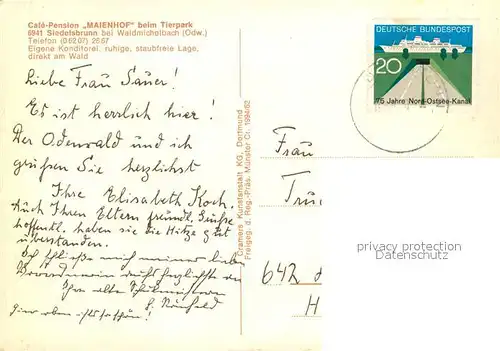 Café-Pension „MAIENHOF" beim Tierpark
6941 Siedelsbrunn bei Waldmichelbach (Odw.)
Telefon (06207) 2667
Eigene Konditorei, ruhige, staubfreie Lage,
direkt am Wald
DEUTSCHE BUNDESPOST
20
75 Jahre Nord-Ostsee-Kanal
Liebe Frau Sauer!
Es ist herrlich hier!
Der Odenwald und ich
grüßen Sie herzlichst
Ihre Elisabeth Koch.
Auch Ihren Eltern freundl. Grüße
hoffentl. haben sie die Hitze gut
überstanden.
Ich schließe mich meiner lieben
herzlichst
Ihre alte
hier oben ist's so schön!
Cramers Kunstanstalt KG, Dortmund
Freigeg. d. Reg.-Präs. Münster Cr. 1994/62
Frau
642
H
privacy protection
Datenschutz